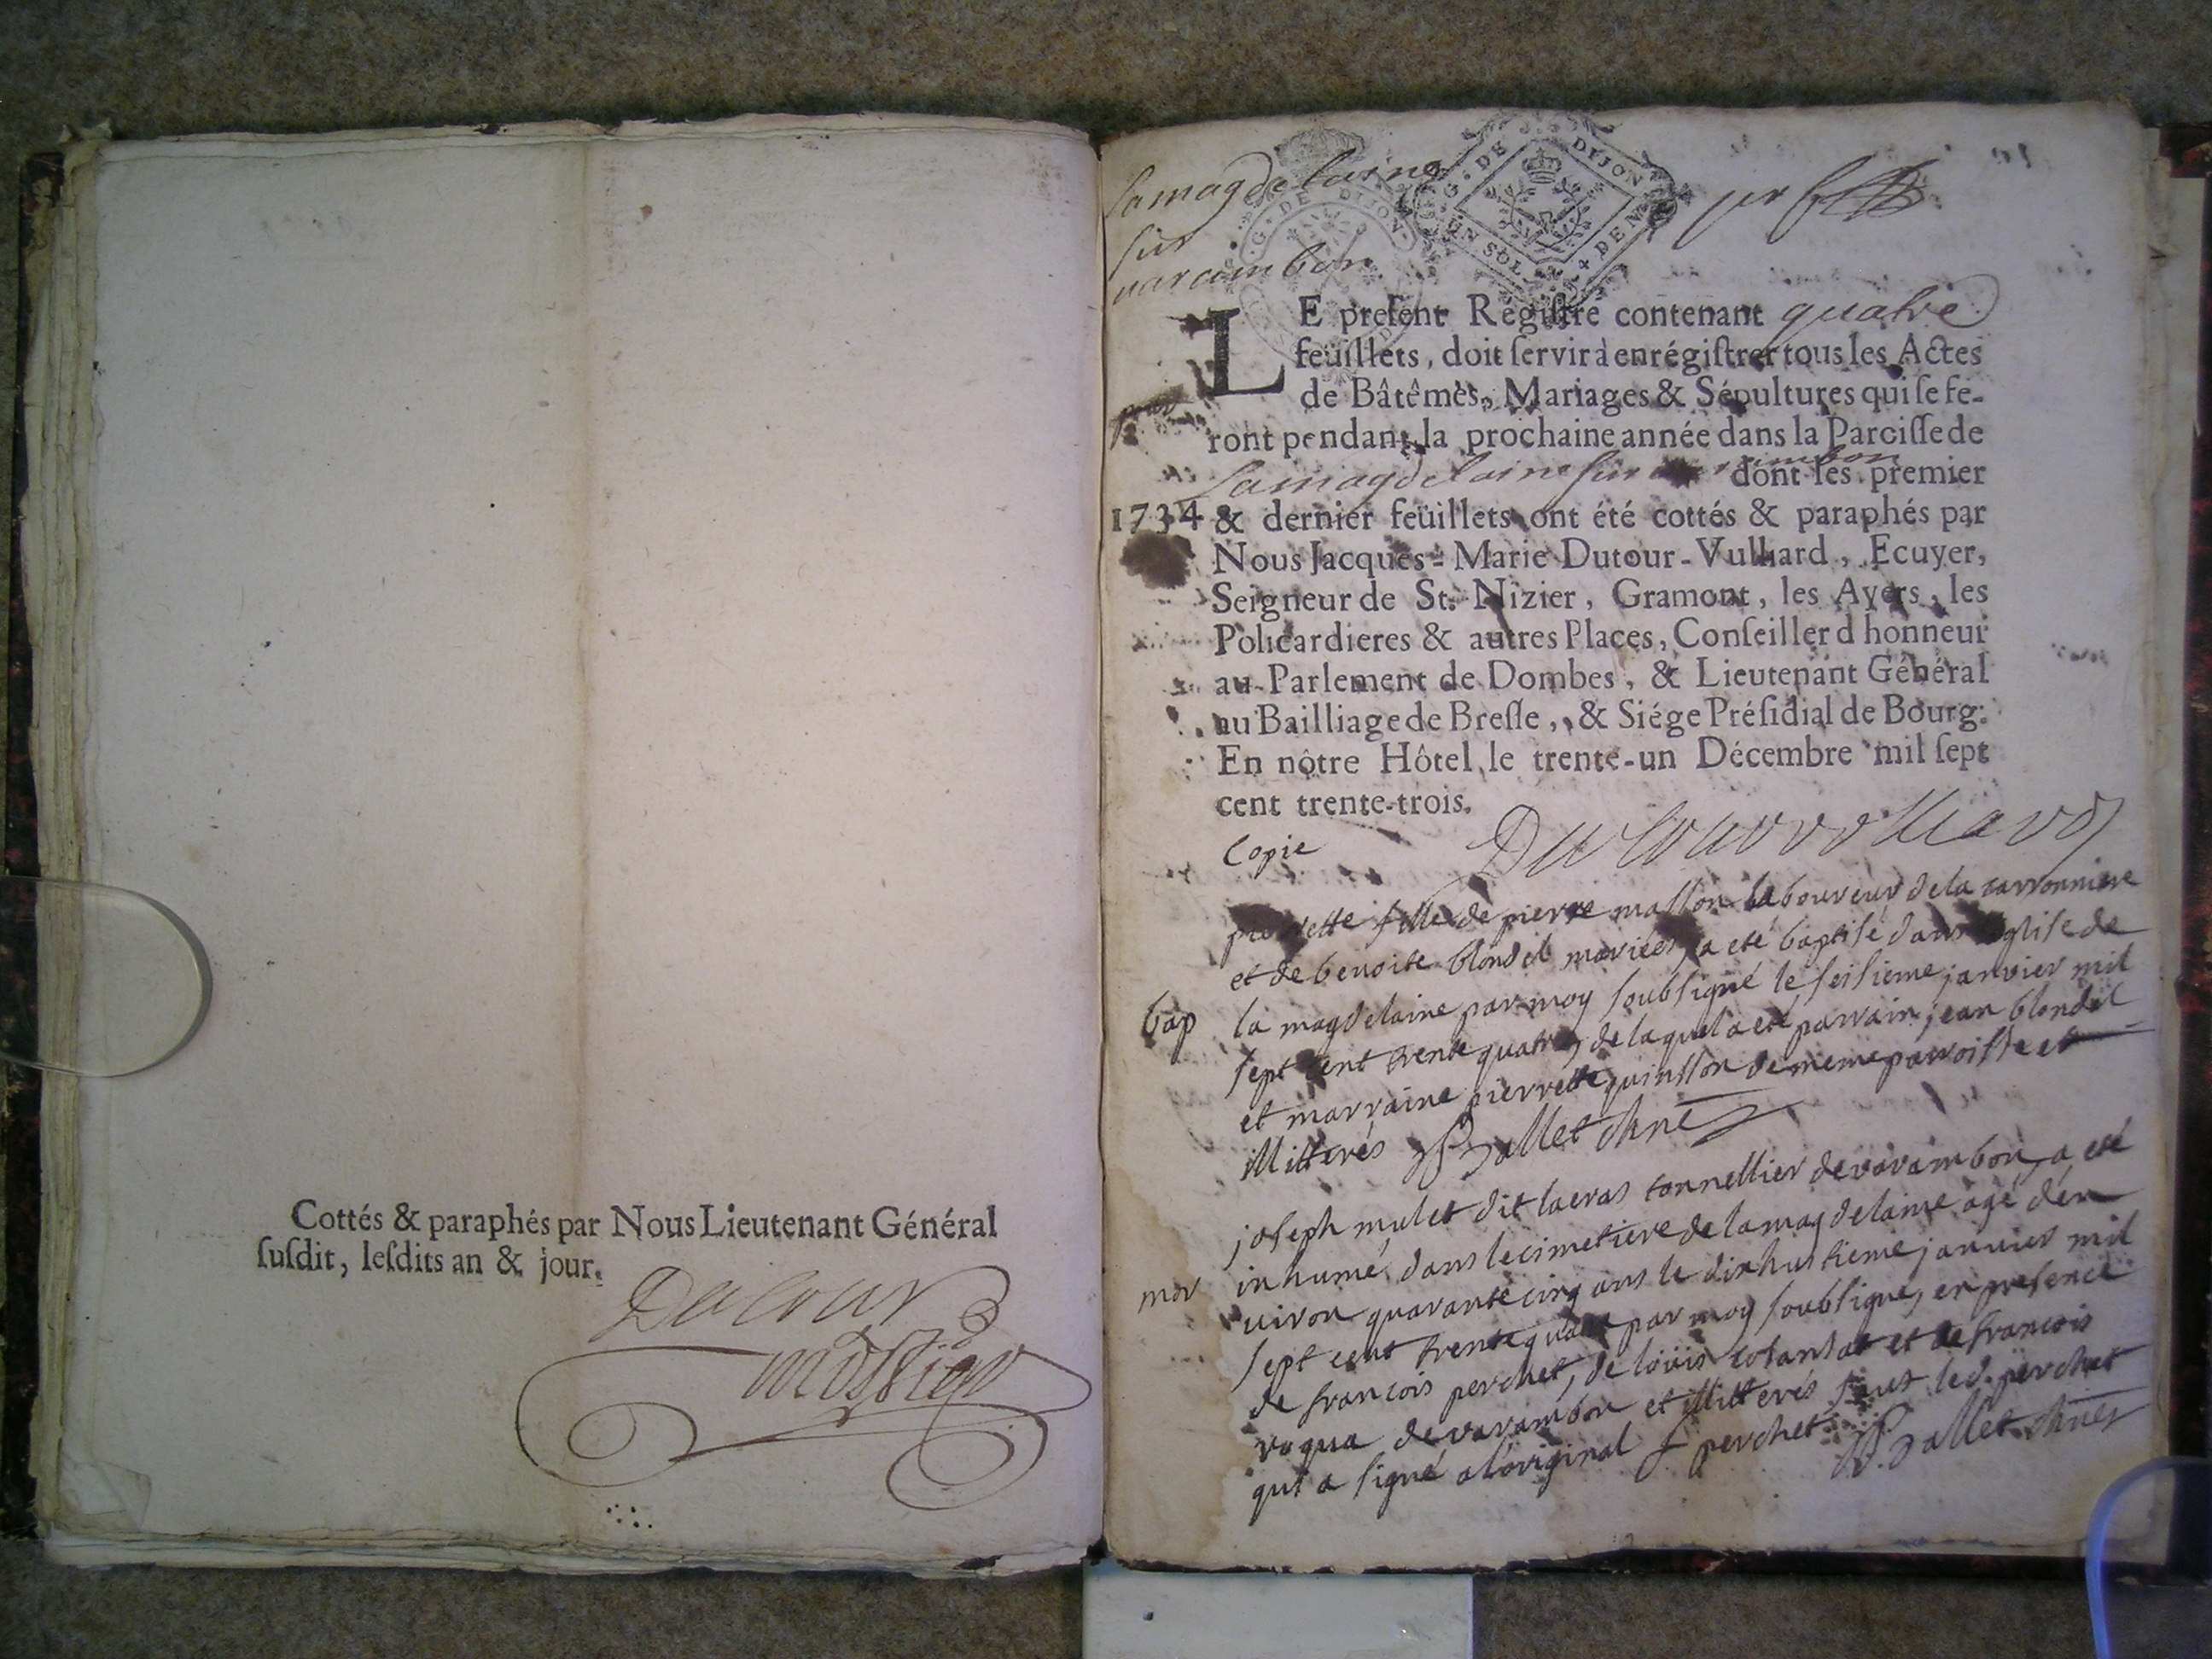 Cottés & paraphés par Nous Lieutenant Général
ſuſdit, leſdits an & jour.
Dutour
lamagdelaine
sur
varambon
G. DE DIJON
G. DE DIJON
UN SOL 4 DEN
LE preſent Regiſtre contenant quatre
feüillets, doit ſervir à enrégiſtrer tous les Actes
de Bâtêmes, Mariages & Sépultures qui ſe fe-
ront pendant la prochaine année dans la Paroiſſe de
Lamagdelaine sur varambon dont les premier
1734 & dernier feüillets ont été cottés & paraphés par
Nous Jacques-Marie Dutour-Vulliard, Ecuyer,
Seigneur de St. Nizier, Gramont, les Ayers, les
Policardieres & autres Places, Conſeiller d honneur
au Parlement de Dombes, & Lieutenant Général
au Bailliage de Breſſe, & Siége Préſidial de Bourg.
En nôtre Hôtel le trente-un Décembre mil ſept
cent trente-trois.
Copie
Dutourvulliard
pierrette fille de pierre masson laboureur de la carronniere
et de benoite blondel mariés, a eté baptisé dans leglise de
bap la magdelaine par moy soubsigné le seisieme janvier mil
sept cent trente quatre, de laquel a eté parrain jean blondel
et marraine pierrette quinsson de meme parroisse et
illitterés Ballet
joseph mulet dit tonnellier de varambon, a eté
inhumé dans le cimetiere de la magdelaine agé den
mor viron quarante cinq ans le dixhuitieme janvier mil
sept cent trente quatre par moy soubsigné, en presence
de francois perchet, de loüis et de francois
de varambon et illitterés saut led. perchet
qui a signé a loriginal f perchet Ballet